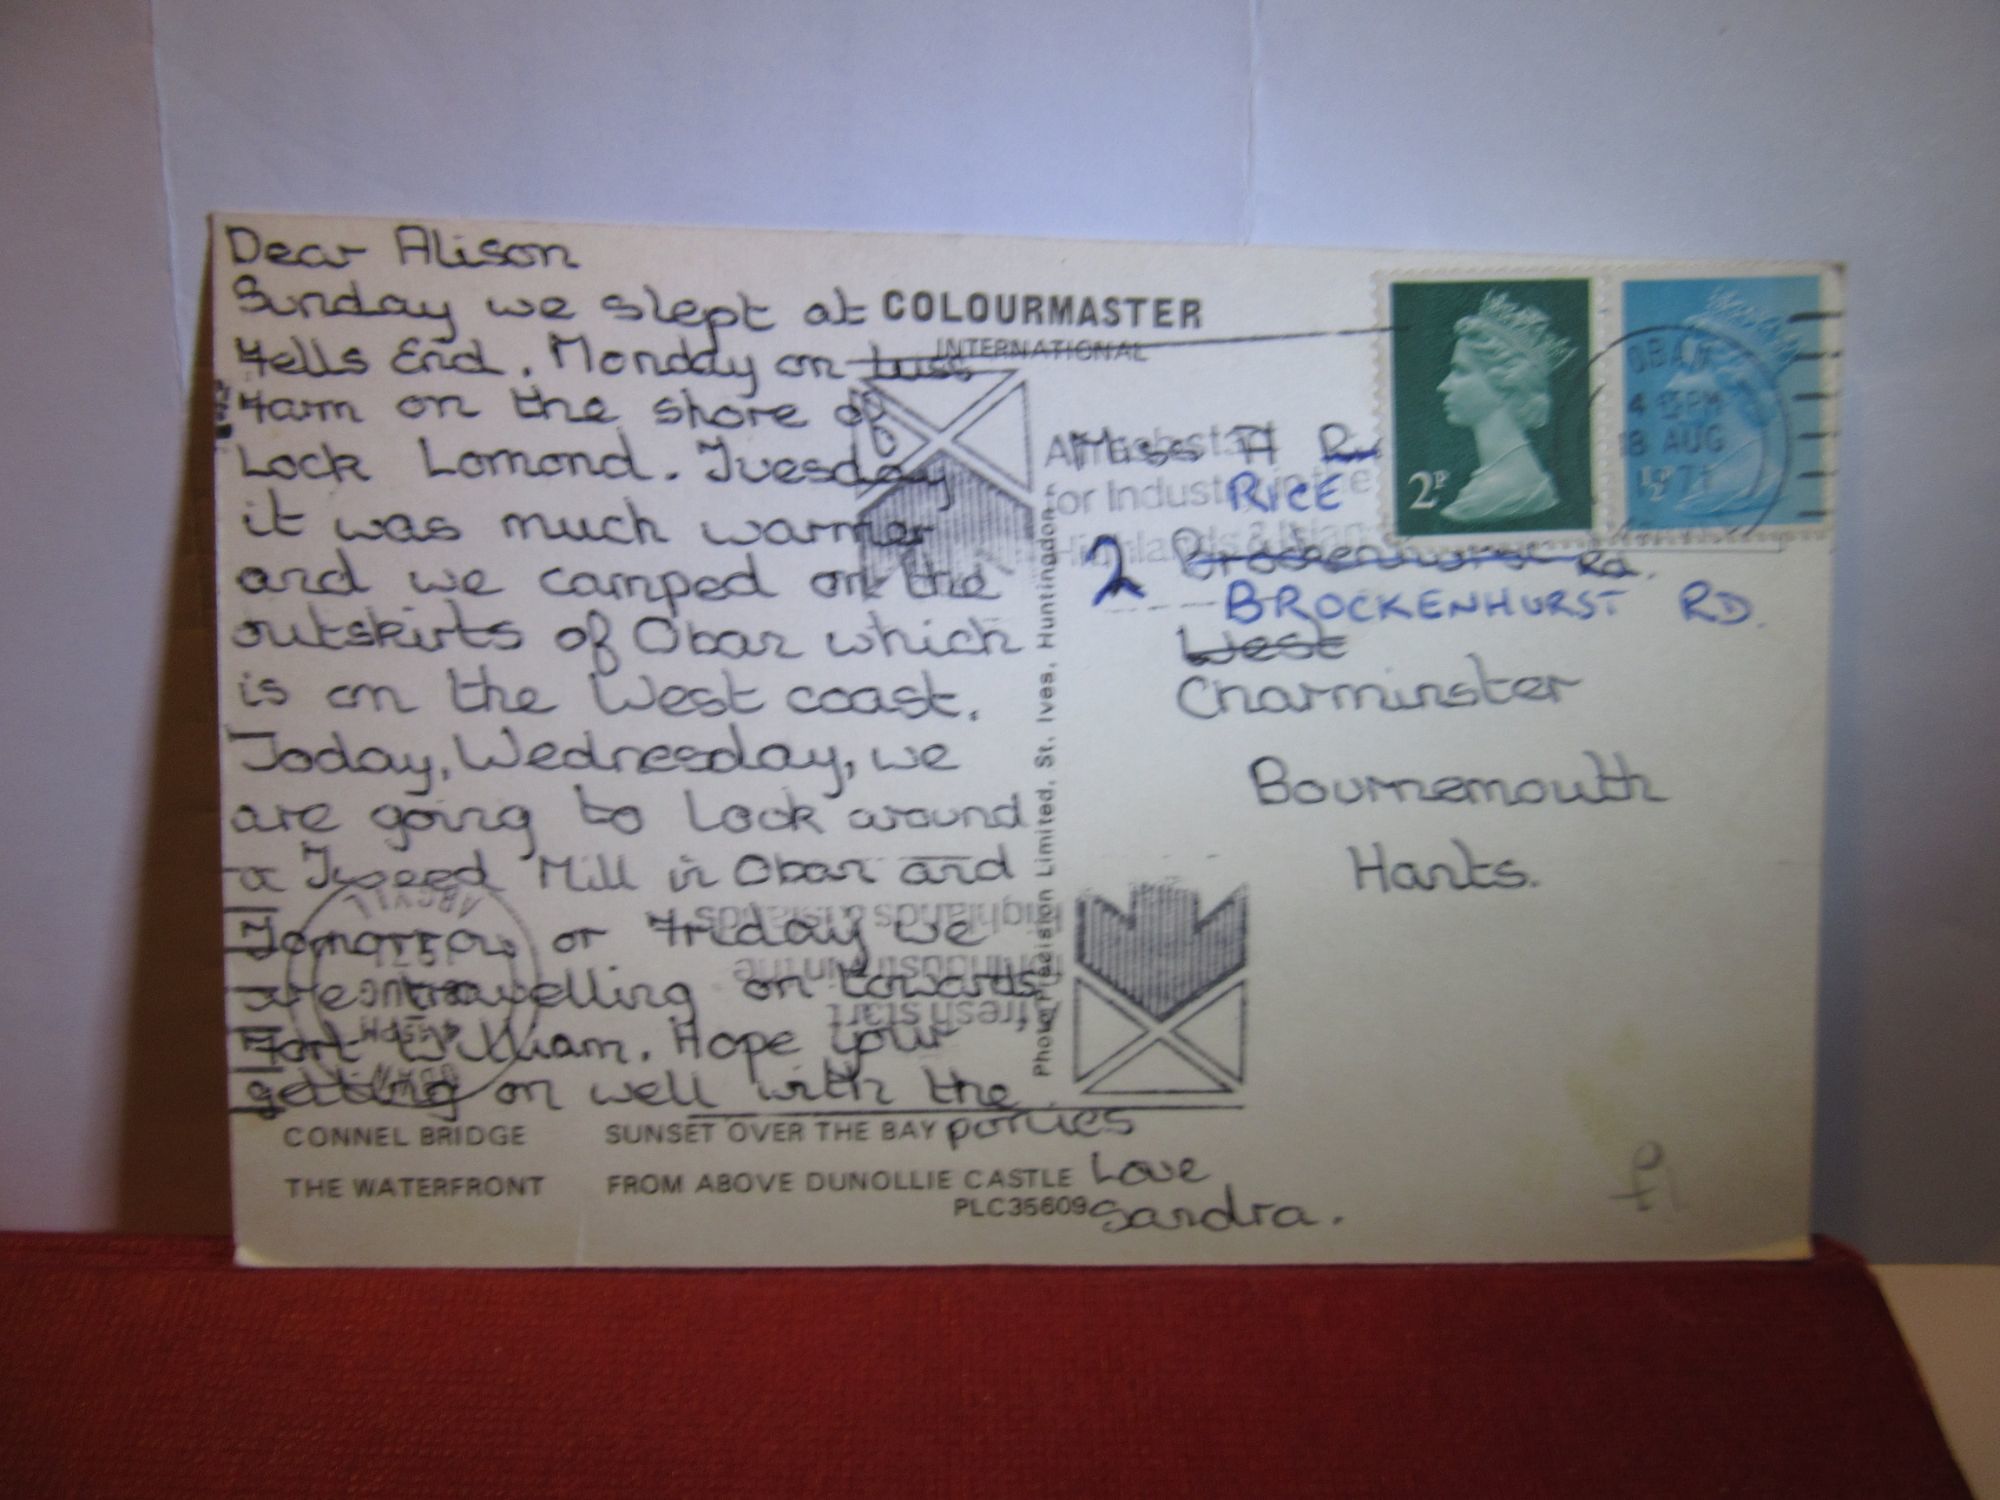 Dear Alison
Sunday we slept at
Fells End. Monday on
Farm on the shore of
Lock Lomond. Tuesday
it was much warmer
and we camped on the
outskirts of Oban which
is on the West coast.
Today, Wednesday, we
are going to Look around
a Tweed Mill in Oban and
Tomorrow or Friday we
are travelling on towards
Fort William. Hope your
getting on well with the
ponies
Love
Sandra.
COLOURMASTER
INTERNATIONAL
Miss A
RICE
2 Brockenhurst Rd.
BROCKENHURST RD.
West
Charminster
Bournemouth
Hants.
2P
½P
OBAN
4 15PM
18 AUG
1971
for Industry in the
Highlands & Islands
Photo Precision Limited, St. Ives, Huntingdon
ARGYLL
Highlands & Islands
for Industry in the
fresh start
CONNEL BRIDGE
SUNSET OVER THE BAY
THE WATERFRONT
FROM ABOVE DUNOLLIE CASTLE
PLC35609
£1